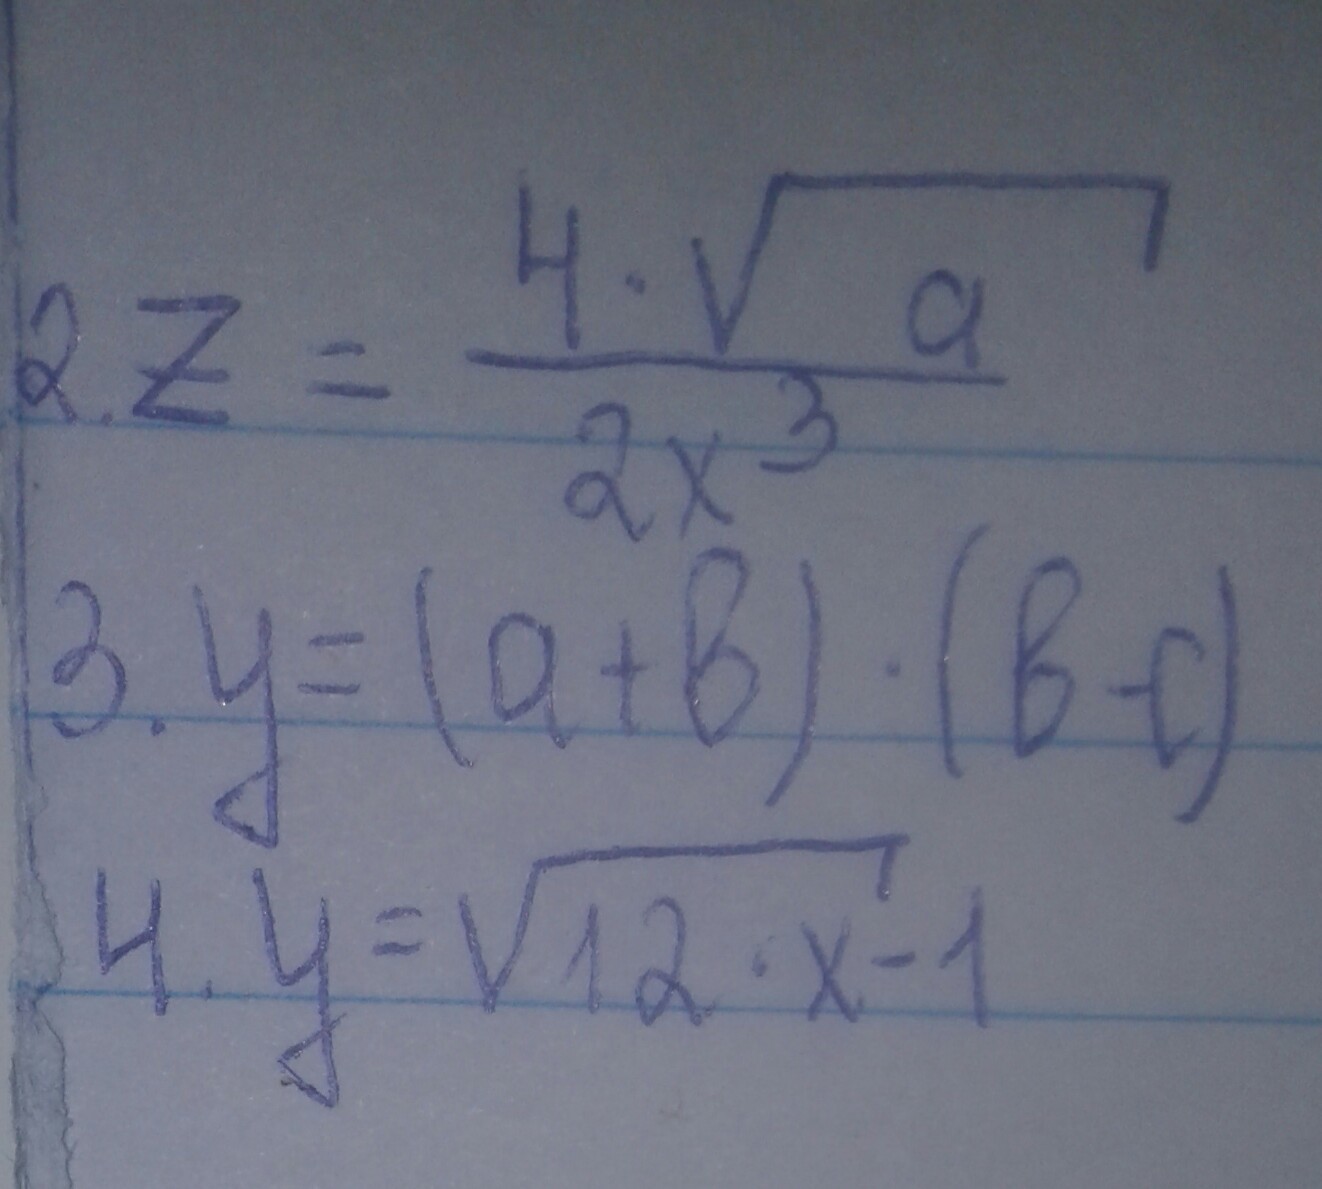 2. Z = 4 · √a / 2x³
3. y = (a + b) · (b - c)
4. y = √12 · x - 1